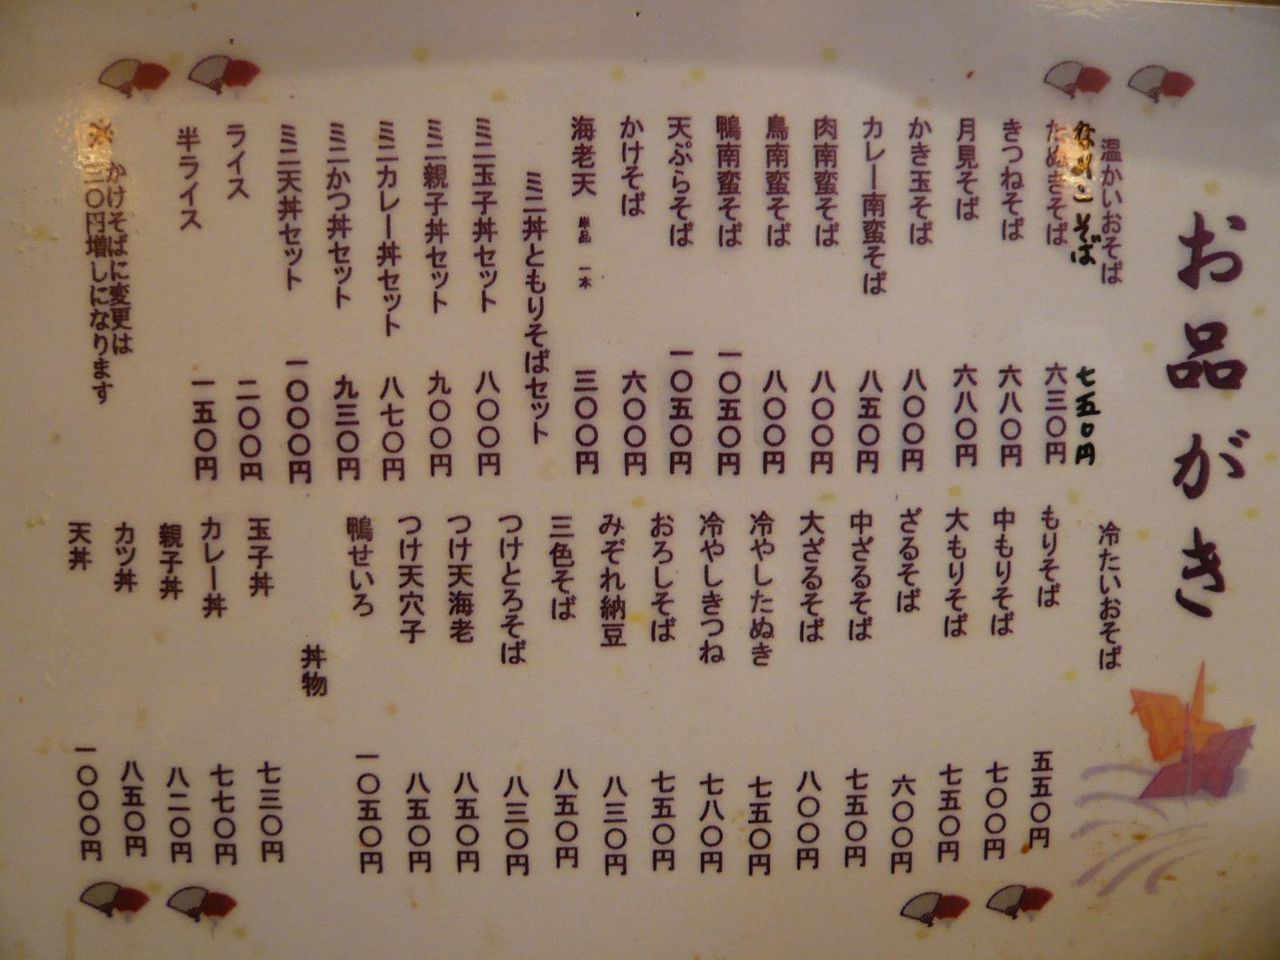 お品がき
温かいおそば
なめこそば 七五〇円
たぬきそば 六三〇円
きつねそば 六八〇円
月見そば 六八〇円
かき玉そば 八〇〇円
カレー南蛮そば 八五〇円
肉南蛮そば 八〇〇円
鳥南蛮そば 八〇〇円
鴨南蛮そば 一〇五〇円
天ぷらそば 一〇五〇円
かけそば 六〇〇円
海老天 単品 一本 三〇〇円
ミニ丼ともりそばセット
ミニ玉子丼セット 八〇〇円
ミニ親子丼セット 九〇〇円
ミニカレー丼セット 八七〇円
ミニかつ丼セット 九三〇円
ミニ天丼セット 一〇〇〇円
ライス 二〇〇円
半ライス 一五〇円
※ かけそばに変更は
〇円増しになります
冷たいおそば
もりそば 五五〇円
中もりそば 七〇〇円
大もりそば 七五〇円
ざるそば 六〇〇円
中ざるそば 七五〇円
大ざるそば 八〇〇円
冷やしたぬき 七五〇円
冷やしきつね 七八〇円
おろしそば 七五〇円
みぞれ納豆 八三〇円
三色そば 八五〇円
つけとろそば 八三〇円
つけ天海老 八五〇円
つけ天穴子 八五〇円
鴨せいろ 一〇五〇円
丼物
玉子丼 七三〇円
カレー丼 七七〇円
親子丼 八二〇円
カツ丼 八五〇円
天丼 一〇〇〇円